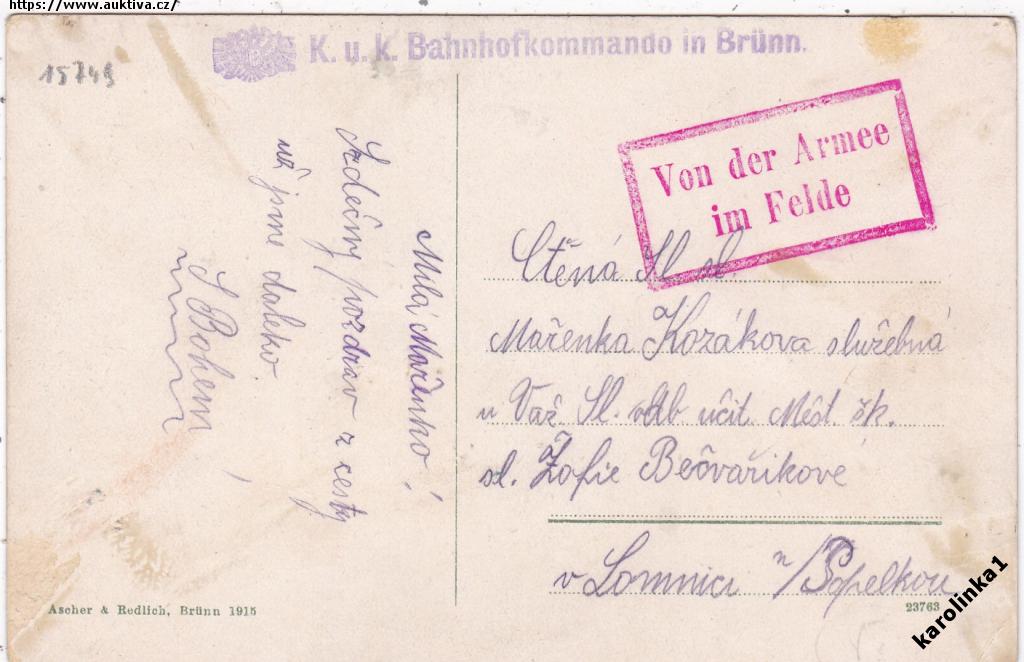 https://www.auktiva.cz/
K. u. k. Bahnhofkommando in Brünn.
15749
Von der Armee
im Felde
Milá Mařenko!
Srdečný pozdrav z cesty
už jsme daleko
S Bohem
Ctěná Sl. sl.
Mařenka Kozákova služebná
u Važ. Sl. učit. Měst. šk.
sl. Žofie Bečvaříkove
v Lomnici n/Popelkou
Ascher & Redlich, Brünn 1915
23763
karolinka1